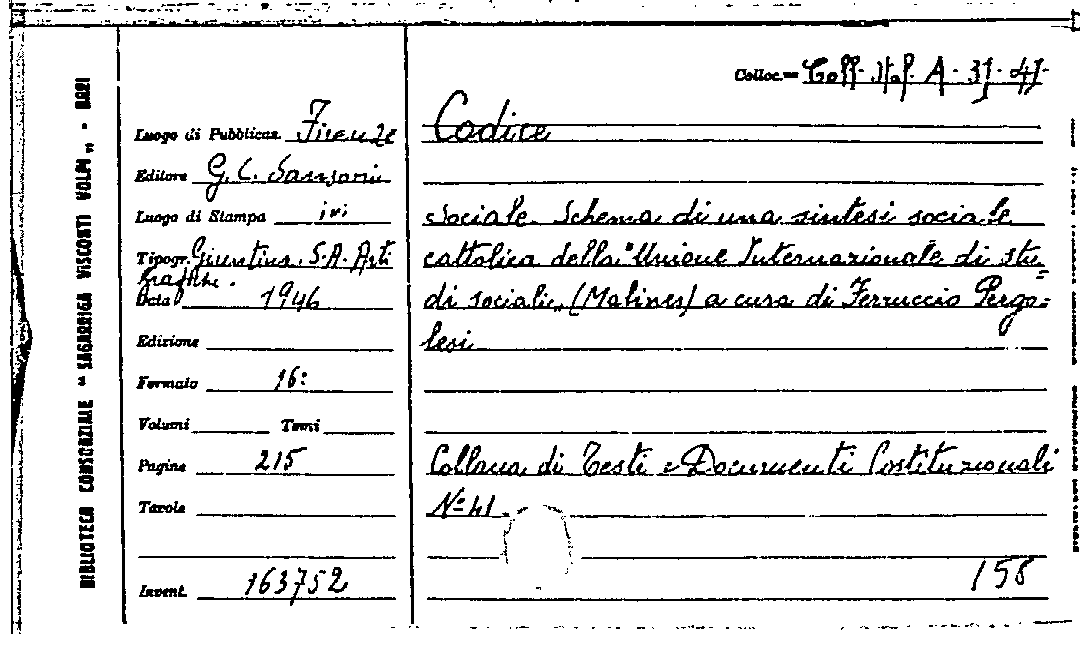 BIBLIOTECA CONSORZIALE "SAGARRIGA VISCONTI VOLPI" - BARI
Colloc.= Coll. Ital. A. 31. 41.
Luogo di Pubblicaz. Firenze
Editore G. C. Sansoni
Luogo di Stampa ivi
Tipogr. Giuntina. S.A. Arti
Grafiche.
Data 1946
Edizione
Formato 16:
Volumi Tomi
Pagine 215
Tavole
Invent. 163752
Codice
sociale. Schema di una sintesi sociale
cattolica della "Unione Internazionale di stu=
di sociali„ (Malines) a cura di Ferruccio Pergo=
lesi
Collana di Testi e Documenti Costituzionali
Nº 41.
158